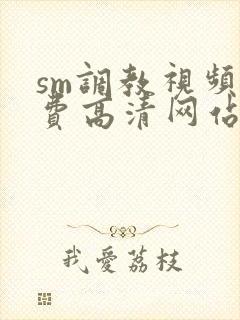 sm調教視頻
費高清网佔
我愛荔枝